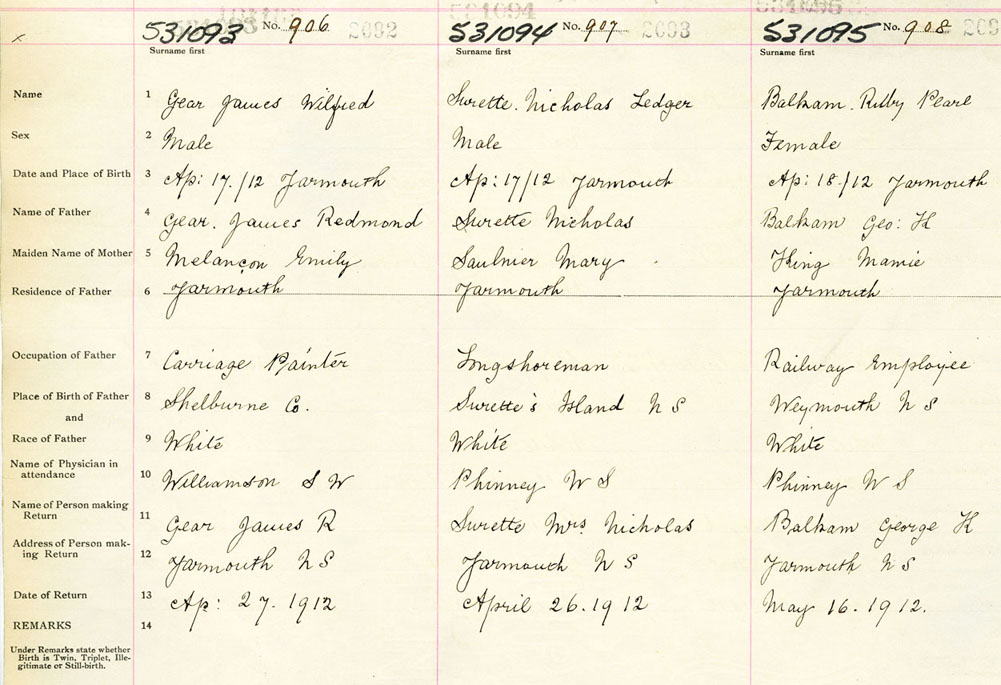 531093 No. 906 2692 531094 No. 907 2693 531095 No. 908
Surname first Surname first Surname first
Name 1 Gear James Wilfred Surette. Nicholas Ledger Balkam. Ruby Pearl
Sex 2 Male Male Female
Date and Place of Birth 3 Ap: 17./12 Yarmouth Ap: 17/12 Yarmouth Ap: 18./12 Yarmouth
Name of Father 4 Gear. James Redmond Surette Nicholas Balkam Geo: H
Maiden Name of Mother 5 Melancon Emily Saulnier Mary King Mamie
Residence of Father 6 Yarmouth Yarmouth Yarmouth
Occupation of Father 7 Carriage Painter Longshoreman Railway Employee
Place of Birth of Father 8 Shelburne Co. Surette's Island N S Weymouth N S
and
Race of Father 9 White White White
Name of Physician in
attendance 10 Williamson S W Phinney W S Phinney W S
Name of Person making
Return 11 Gear James R Surette Mrs Nicholas Balkam George H
Address of Person mak-
ing Return 12 Yarmouth N S Yarmouth N S Yarmouth N S
Date of Return 13 Ap: 27. 1912 April 26. 1912 May 16. 1912.
REMARKS 14
Under Remarks state whether
Birth is Twin, Triplet, Ille-
gitimate or Still-birth.